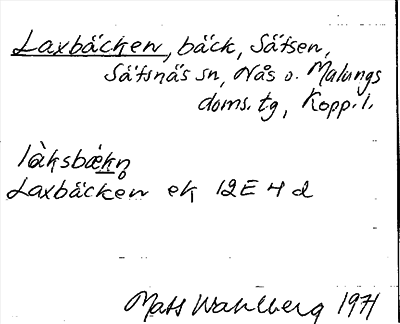 Laxbäcken, bäck, Sätsen,
Sätsnäs sn, Nås o. Malungs
doms. tg, Kopp. l.
làksbæ̀kn̥
Laxbäcken ek 12E 4d
Mats Wahlberg 1971